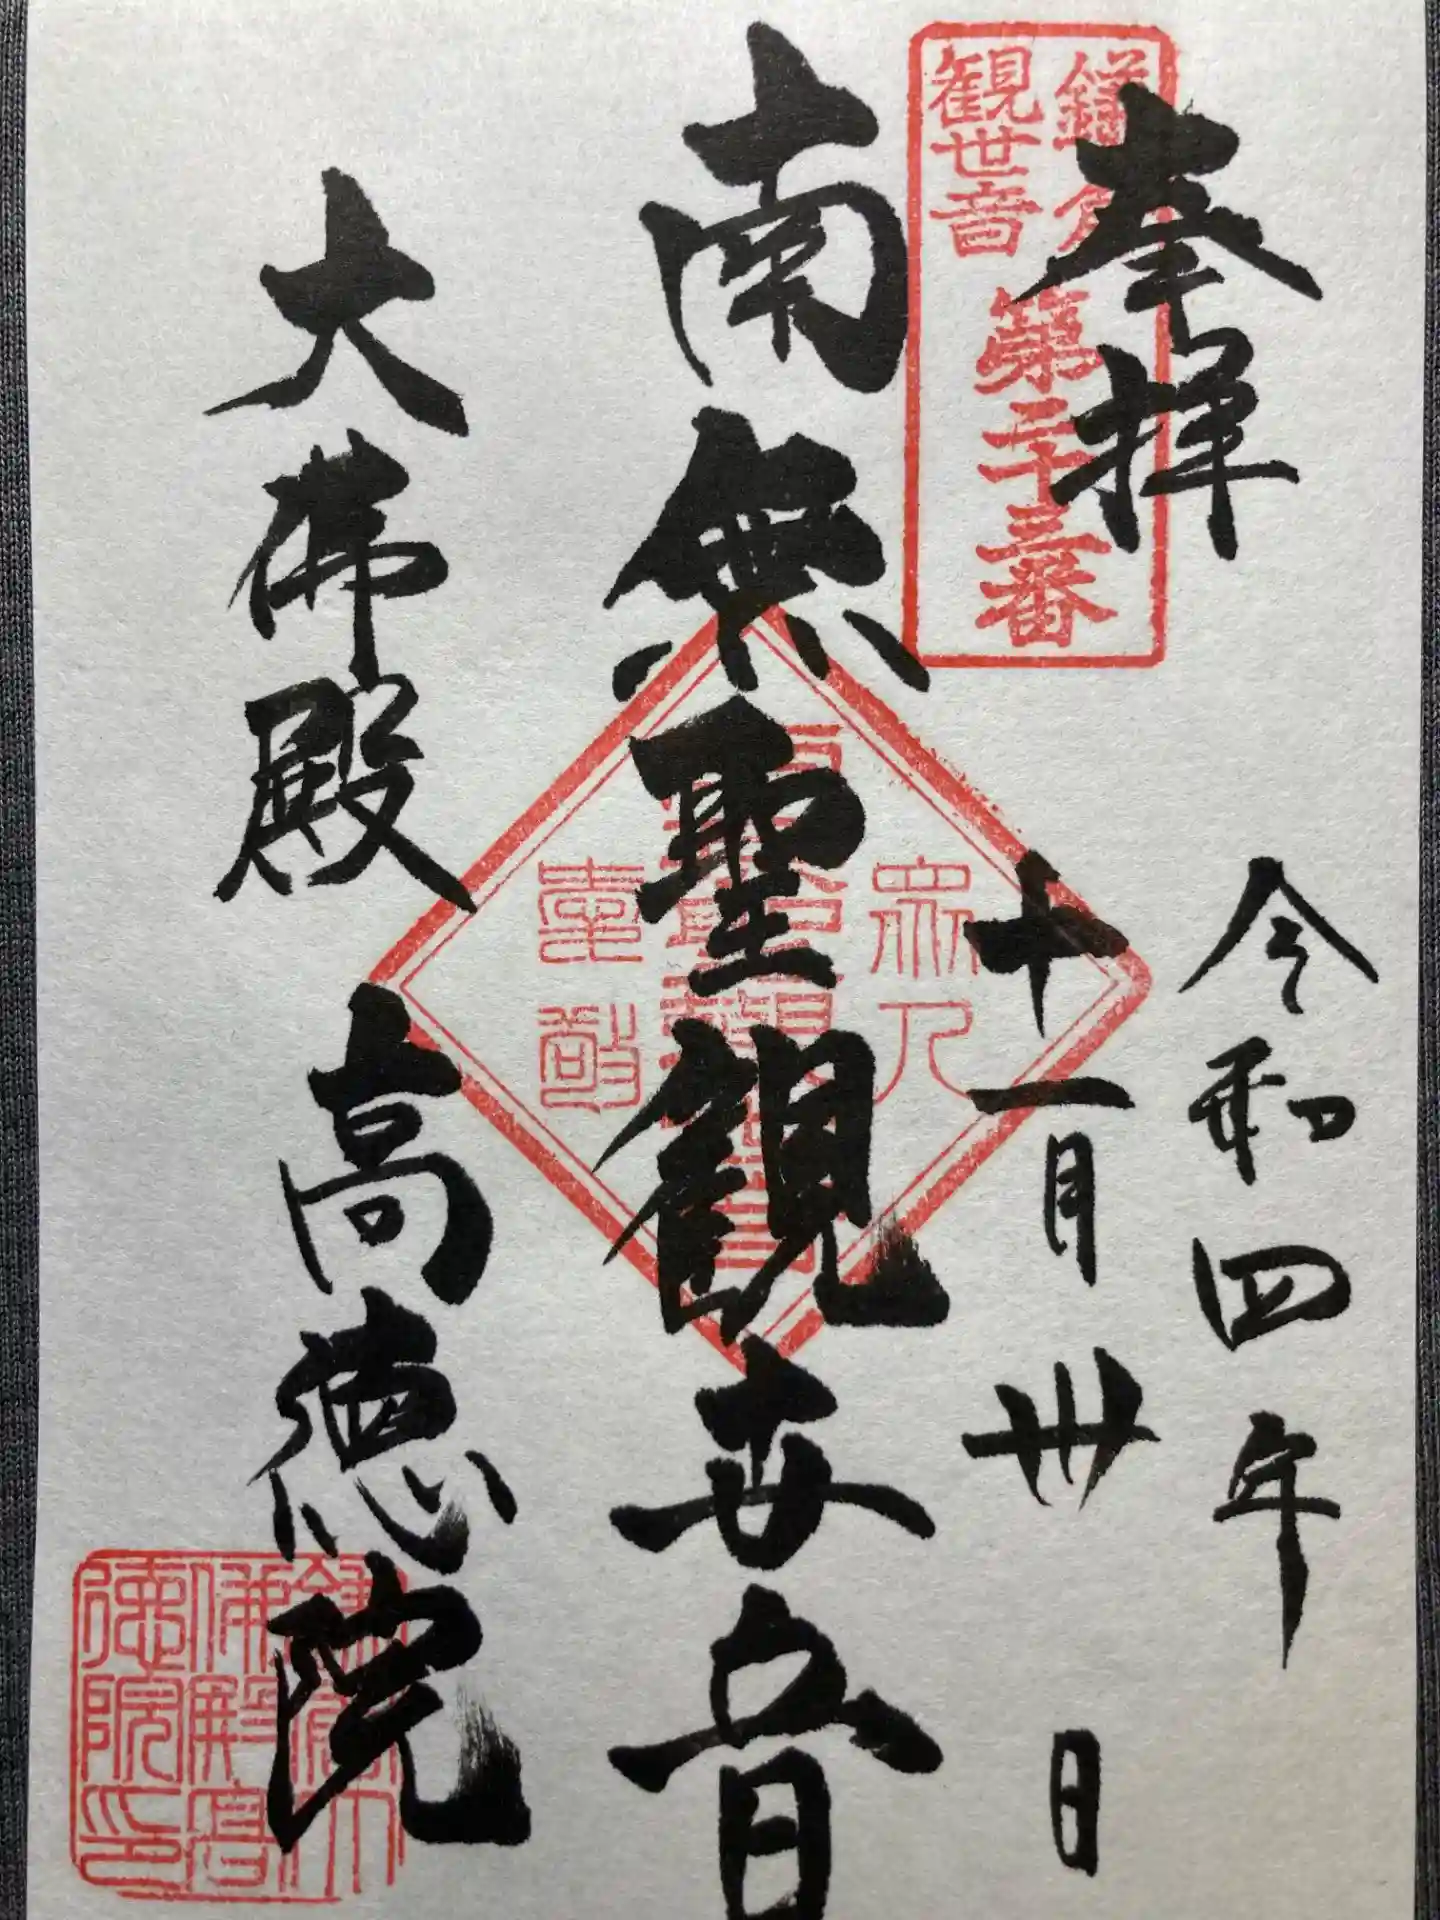 奉拝
鎌倉
観世音
第二十三番
令和四年
十一月卅日
南無聖観世音
衆人
愛敬
大佛殿
高徳院
鎌倉大
佛殿高
徳院印